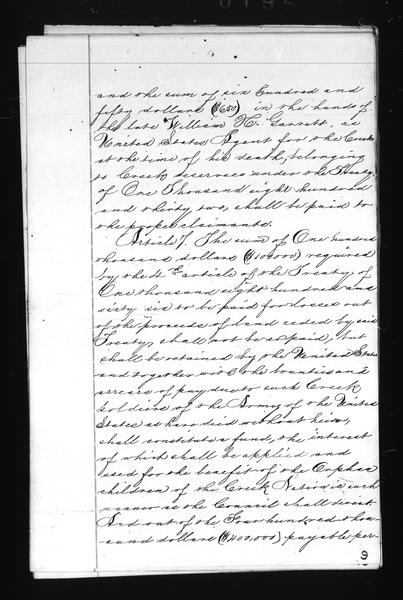 and the sum of six hundred and
fifty dollars ($650) in the hands of
the late William H. Garrett, as
United States Agent for the Creeks
at the time of his death, belonging
to Creek deserves under the Treaty
of One Thousand eight hundred
and thirty two, shall be paid to
the proper claimants.
Article 7. The sum of One hundred
thousand dollars ($100,000) required
by the 4th article of the Treaty of
One thousand eight hundred and
sixty six to be paid for losses out
of the proceeds of land ceded by said
Treaty, shall not be so paid, but
shall be retained by the United States
and together with the bounties and
arrears of pay due to such Creek
soldiers of the Army of the United
States as have died without heirs,
shall constitute a fund, the interest
of which shall be applied and
used for the benefit of the Orphan
children of the Creek Nation in such
manner as the Council shall direct
And out of the Four hundred thou-
sand dollars ($400,000) payable per-
9